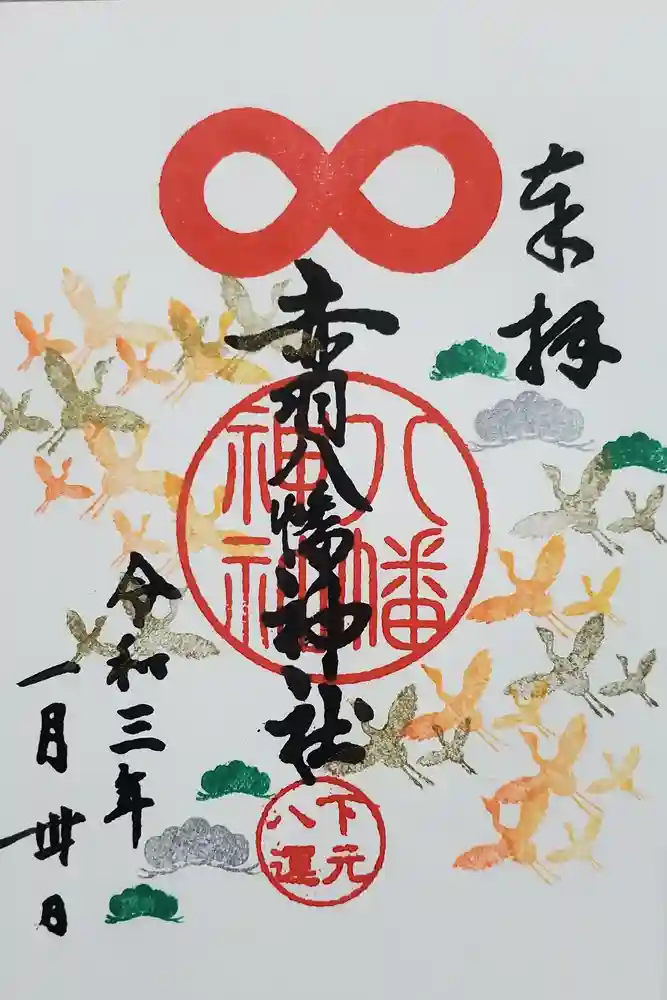 奉拝
赤羽八幡神社
八幡
神社
下元
八運
令和三年
一月卅日